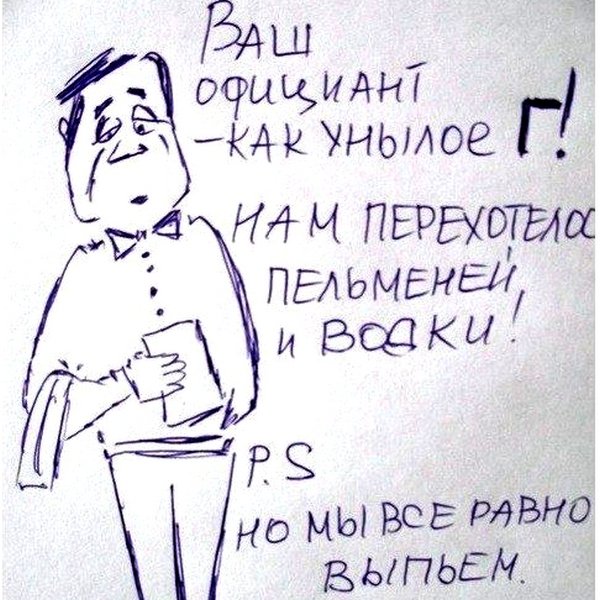 ВАШ
ОФИЦИАНТ
–КАК УНЫЛОЕ Г!
НАМ ПЕРЕХОТЕЛОС
ПЕЛЬМЕНЕЙ,
И ВОДКИ!
P.S
НО МЫ ВСЕ РАВНО
ВЫПЬЕМ.